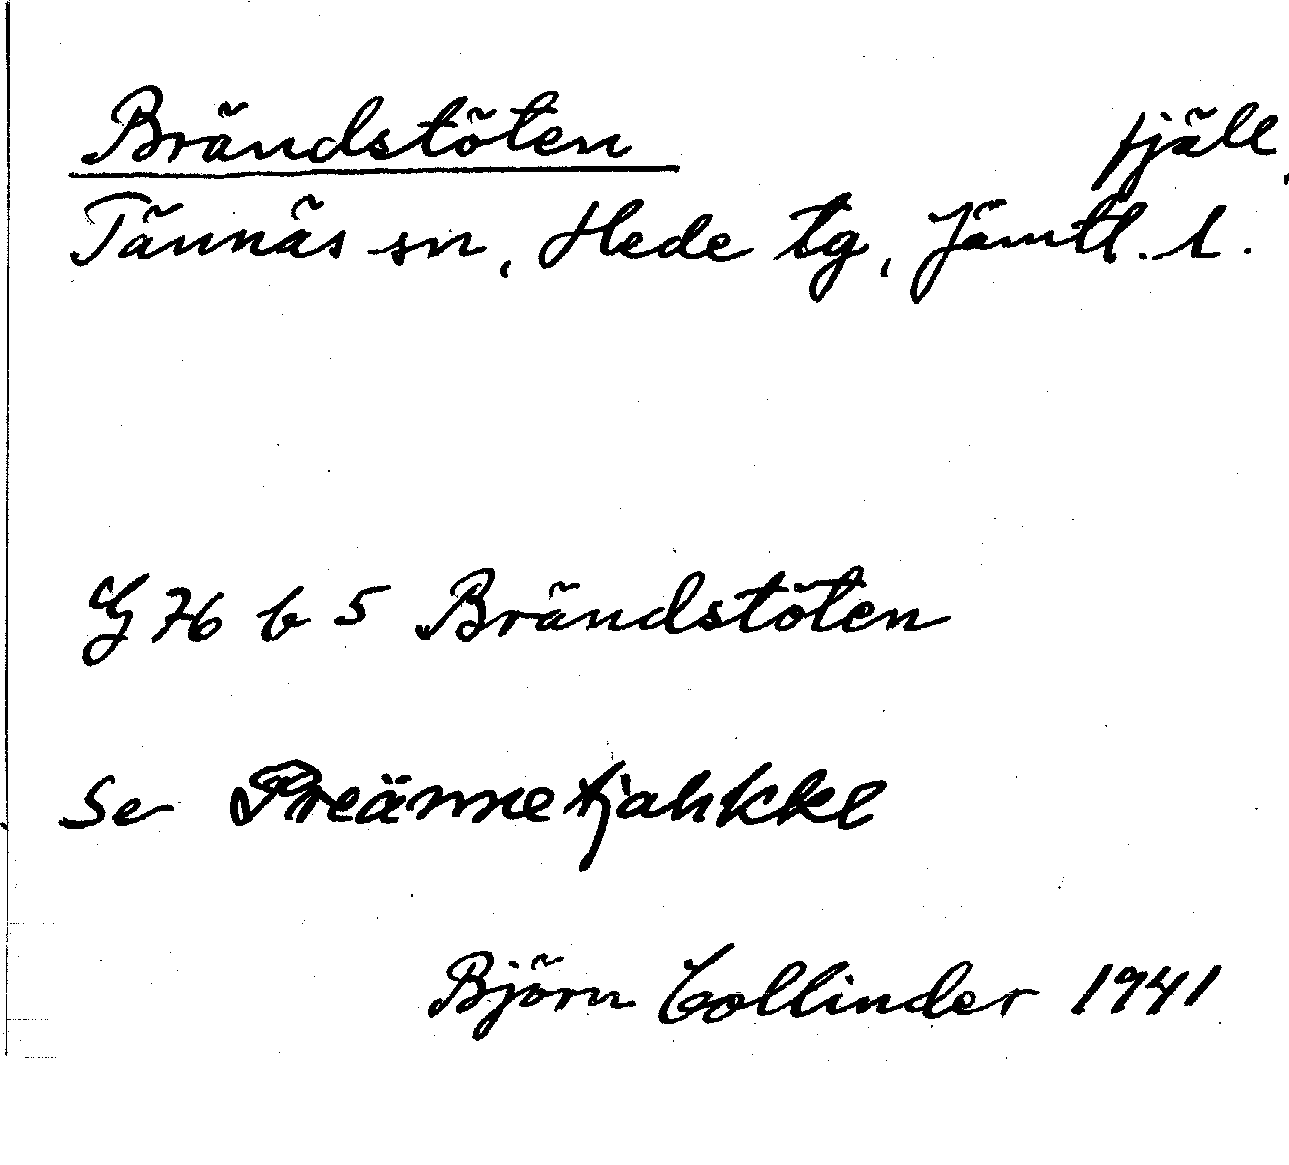 Brändstöten fjäll
Tännäs sn, Hede tg, Jämtl. l.
G 76 b 5 Brändstöten
Se Preännetjahkke
Björn Collinder 1941